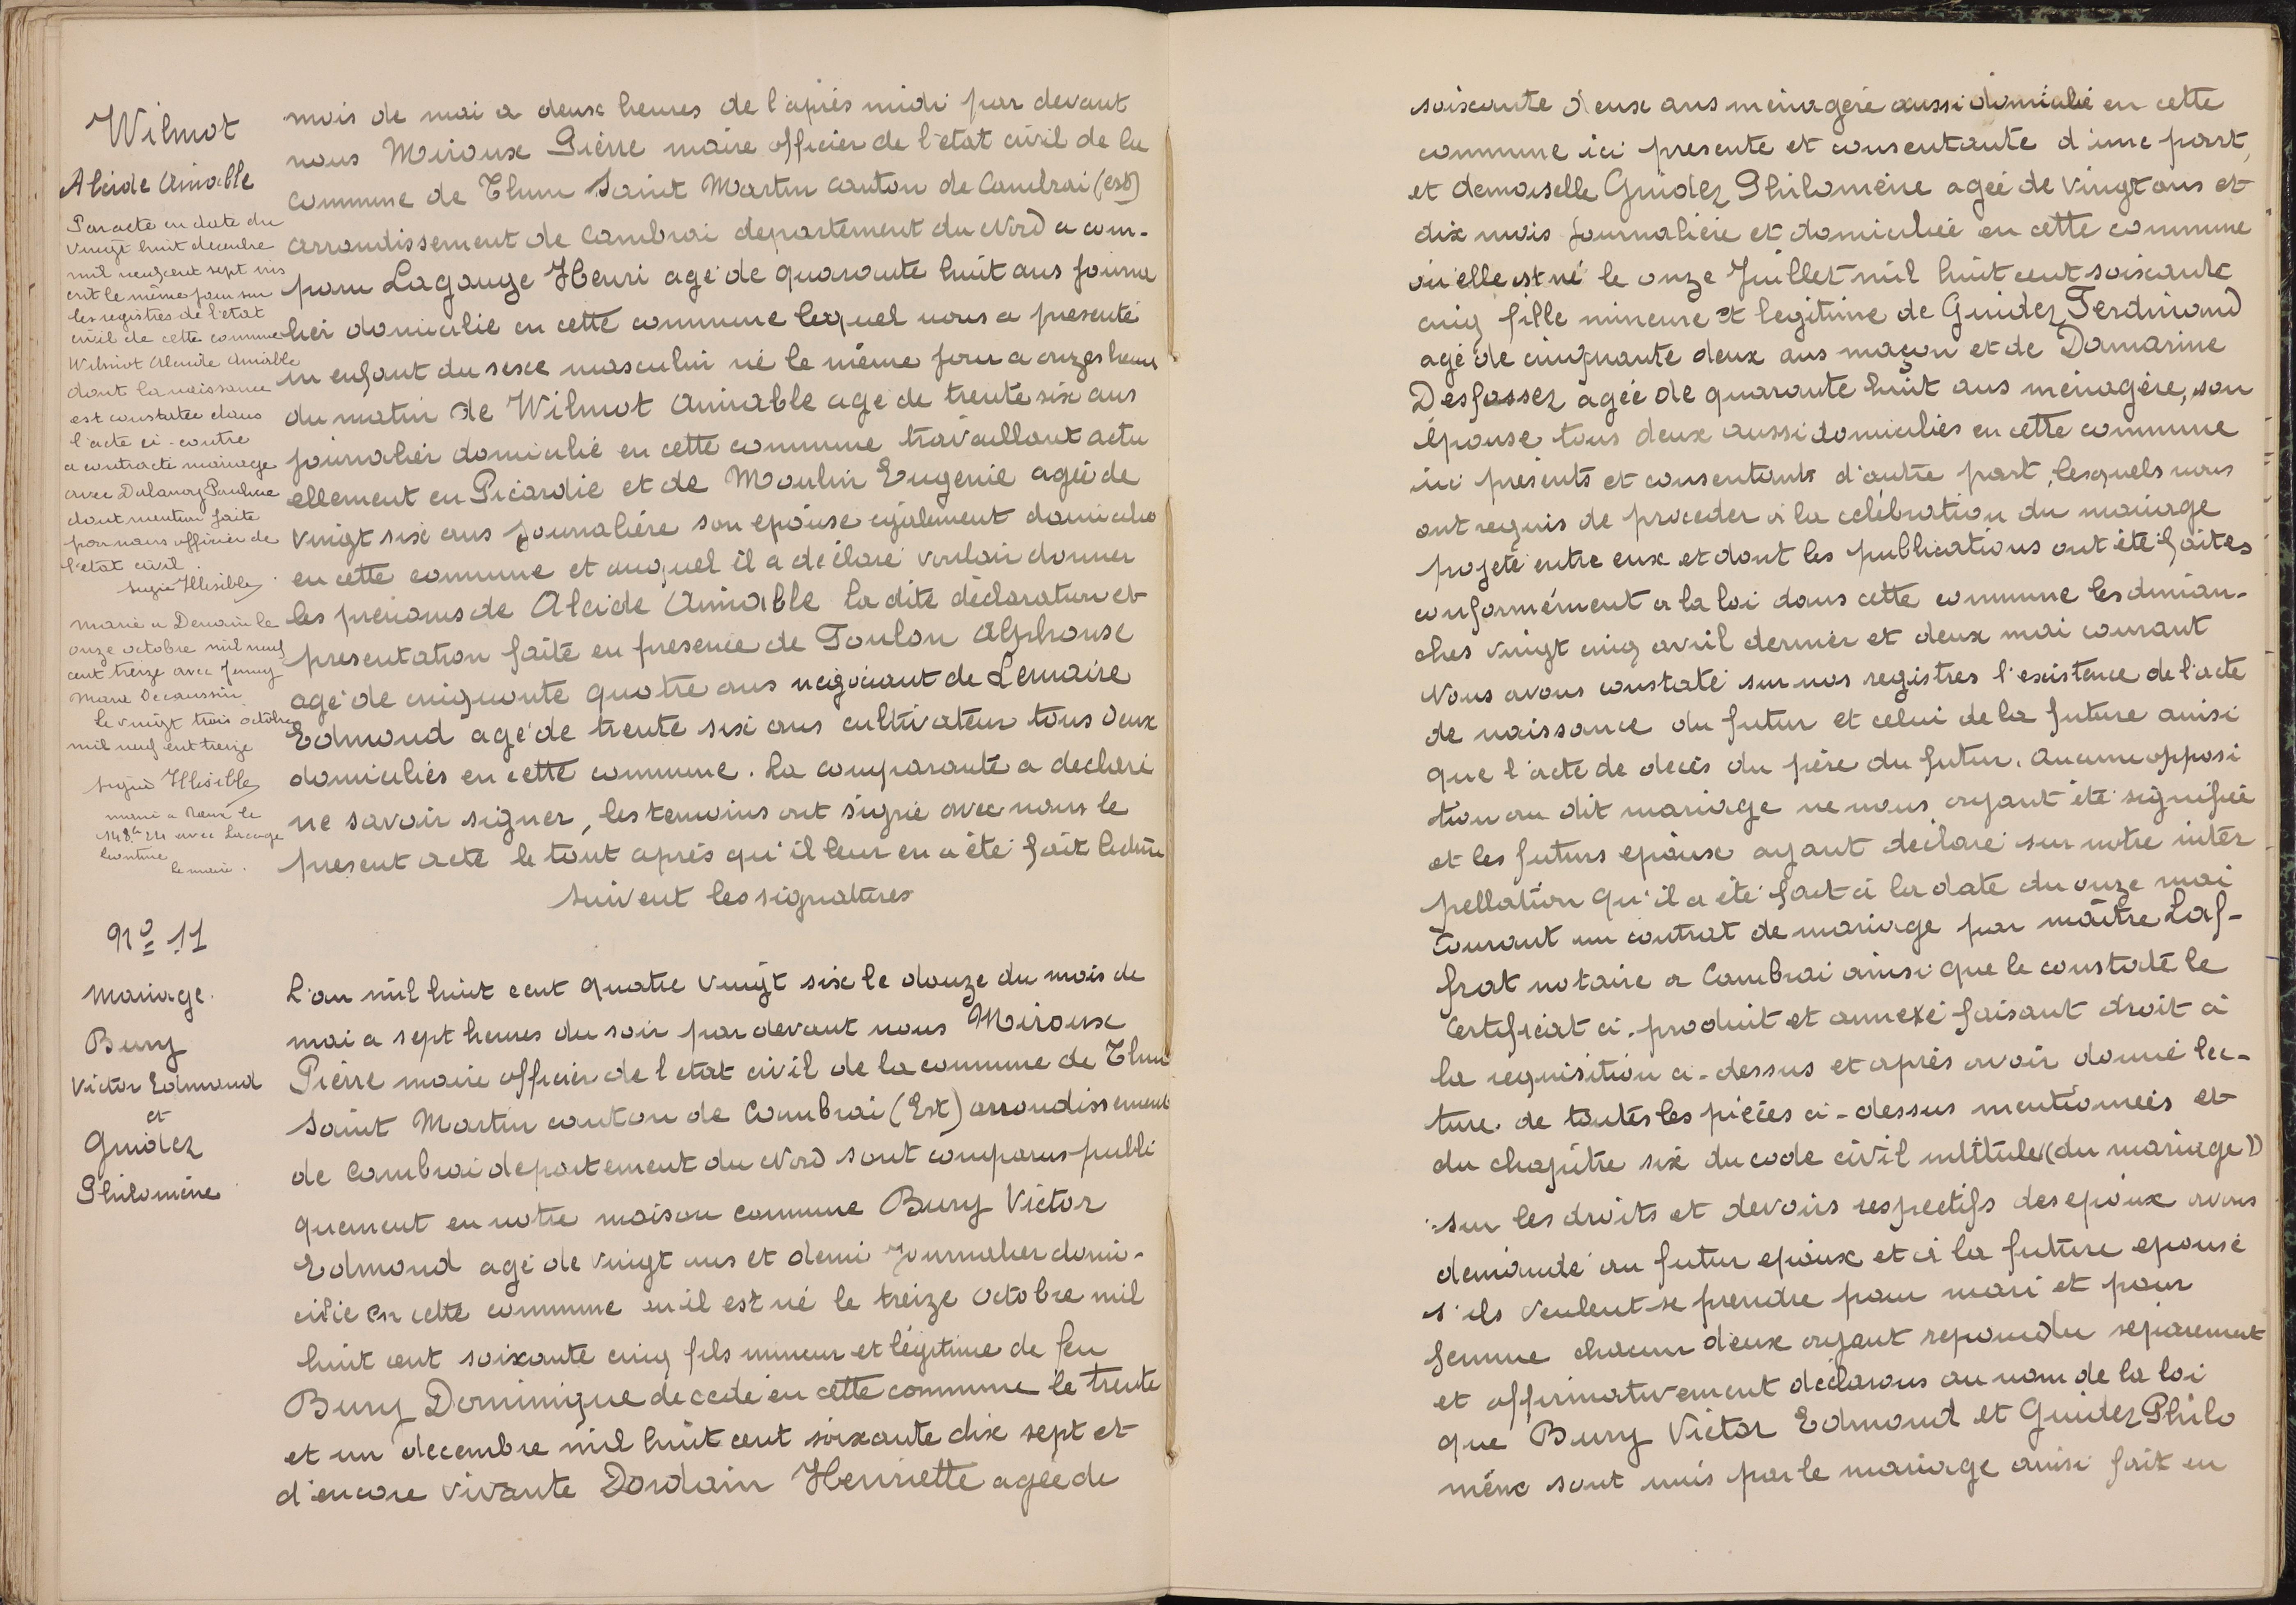 Wilmot
Alcide Aimable
Par acte en date du
vingt huit decembre
mil neuf cent sept ins
crit le même jour sur
les registres de l'etat
civil de cette commune
Wilmot Alcide Aimable
dont la naissance
est constatée dans
l'acte ci-contre
a contracté mariage
avec Dalanoy Pauline
dont mention faite
par nous officier de
l'état civil.
signé Illisible
marié a Denain le
onze octobre mil neuf
cent treize avec Jenny
Marie Decaussin
le vingt trois octobre
mil neuf cent treize
signé Illisible
marié a Rœux le
14 8bre 24 avec Lacage
Leontine
le maire.
mois de mai a deux heures de l'après midi par devant
nous Miroux Pierre maire officier de l'état civil de la
commune de Thun Saint Martin canton de Cambrai (est)
arrondissement de Cambrai departement du Nord a com-
paru Lagouge Henri agé de quarante huit ans journa
lier domicilié en cette commune lequel nous a présenté
un enfant du sexe masculin né le même jour a onzes heures
du matin de Wilmot Aimable agé de trente six ans
journalier domicilié en cette commune travaillant actu
ellement en Picardie et de Moulin Eugenie agée de
vingt six ans journalière son epouse egalement domicilié
en cette commune et auquel il a déclaré vouloir donner
les prénoms de Alcide Aimable la dite déclaration et
presentation faite en presence de Toulon Alphonse
agé de cinquante quatre ans négociant de Lemaire
Edmond agé de trente six ans cultivateur tous deux
domiciliés en cette commune. La comparante a declaré
ne savoir signer, les temoins ont signé avec nous le
present acte le tout après qu'il leur en a été fait lecture
suivent les signatures
No 11
Mariage.
Bury
Victor Edmond
et
Guidez
Philomène
L'an mil huit cent quatre vingt six le douze du mois de
mai a sept heures du soir par devant nous Miroux
Pierre maire officier de l'etat civil de la commune de Thun
Saint Martin canton de Cambrai (Est) arrondissement
de Cambrai departement du Nord sont comparus publi
quement en notre maison commune Bury Victor
Edmond agé de vingt ans et demi Journalier domi-
cilié en cette commune ou il est né le treize octobre mil
huit cent soixante cinq fils mineur et légitime de feu
Bury Dominique décédé en cette commune le trente
et un decembre mil huit cent soixante dix sept et
d'encore vivante Dordain Henriette agée de
soixante deux ans ménagère aussi domicilié en cette
commune ici presente et consentante d'une part,
et demoiselle Guidez Philomène agée de vingt ans et
dix mois journalière et domiciliée en cette commune
où elle est né le onze Juillet mil huit cent soixante
cinq fille mineure et legitime de Guidez Ferdinand
agé de cinquante deux ans maçon et de Damarine
Desfossez agée de quarante huit ans ménagère, son
épouse tous deux aussi domiciliés en cette commune
ici présents et consentants d'autre part, lesquels nous
ont requis de proceder à la célébration du mariage
projeté entre eux et dont les publications ont été faites
conformément a la loi dans cette commune les diman-
ches vingt cinq avril dernier et deux mai courant
Nous avons constaté sur nos registres l'existence de l'acte
de naissance du futur et celui de la future ainsi
que l'acte de decès du père du futur. Aucune opposi
tion au dit mariage ne nous ayant été signifiée
et les futurs epoux ayant déclaré sur notre inter
pellation qu'il a été fait à la date du onze mai
courant un contrat de mariage par maître Laf-
frat notaire a Cambrai ainsi que le constate le
certificat ci-produit et annexé faisant droit à
la requisition ci-dessus et après avoir donné lec-
ture de toutes les pièces ci-dessus mentionnées et
du chapitre six du code civil intitulé (du mariage)
sur les droits et devoirs respectifs des epoux avons
demandé au futur epoux et à la future epouse
s'ils veulent se prendre pour mari et pour
femme chacun d'eux ayant repondu separement
et affirmativement déclarons au nom de la loi
que Bury Victor Edmond et Guidez Philo
mène sont unis par le mariage ainsi fait en